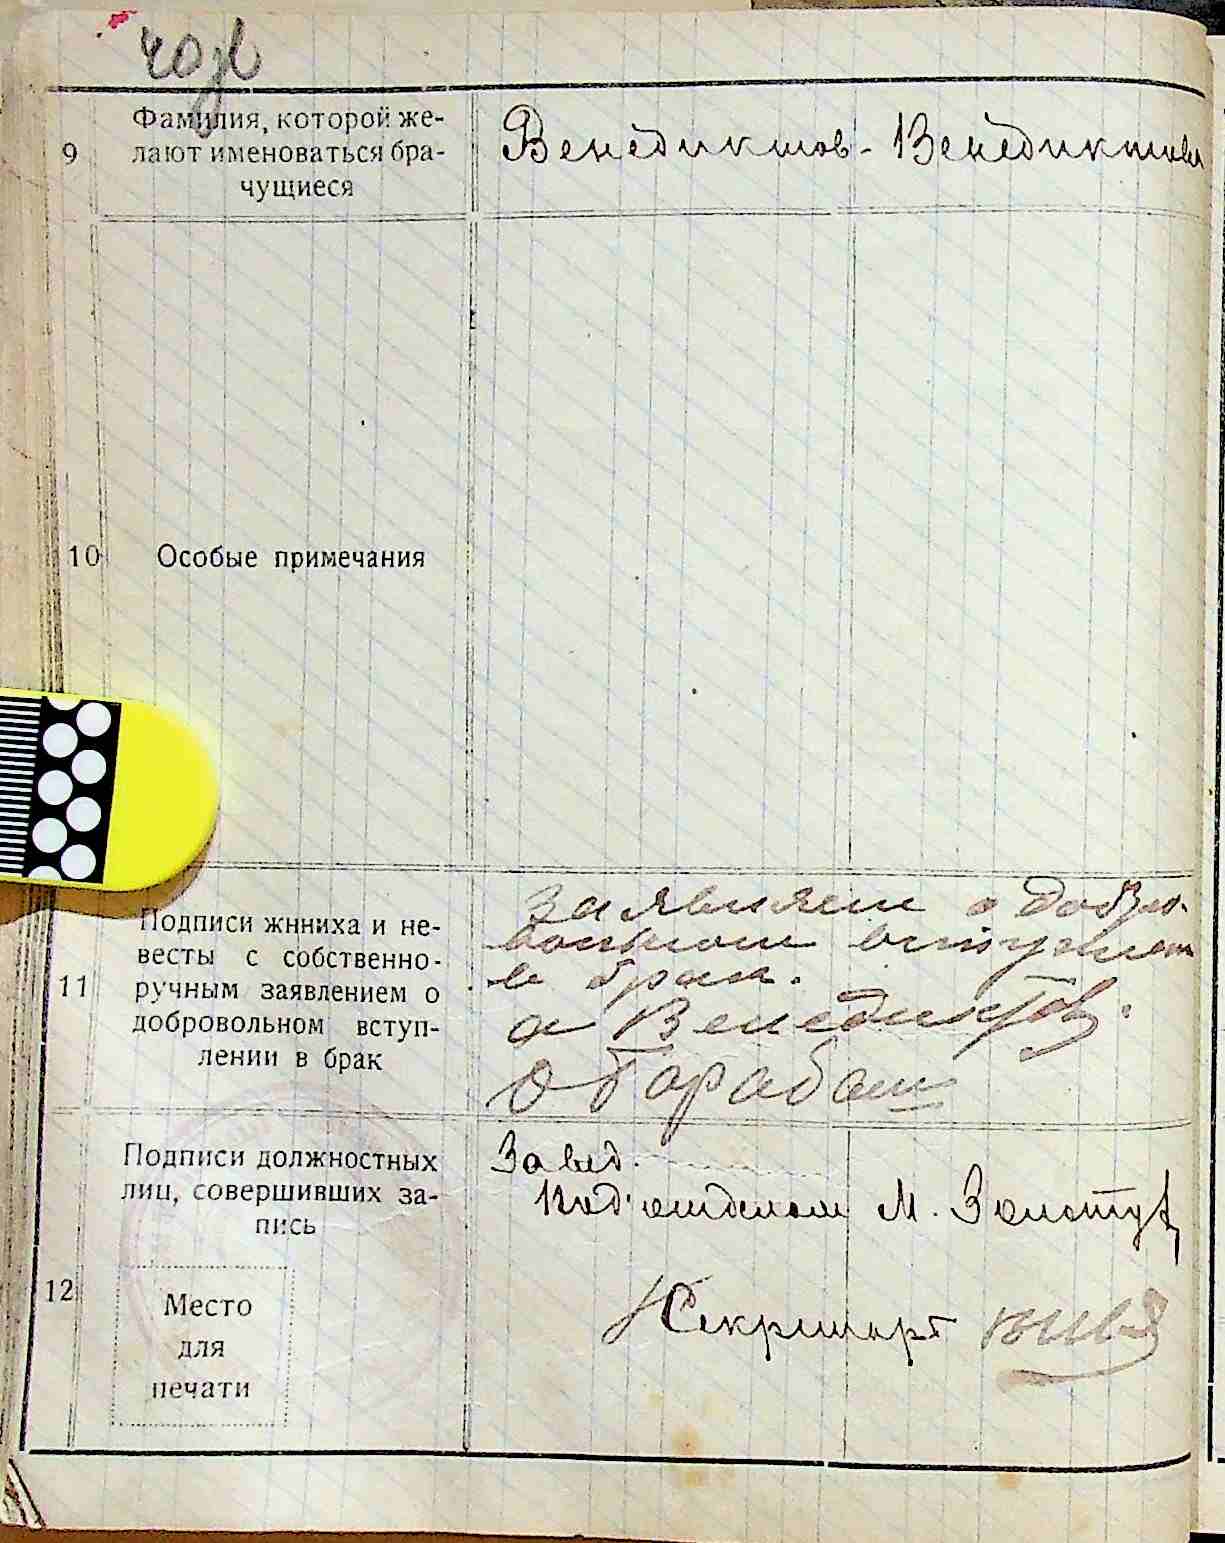 40 об
Фамилия, которой же-
9 лают именоваться бра-
чущиеся
Венедиктов - Венедиктова
10 Особые примечания
Подписи жнниха и не-
весты с собственно-
11 ручным заявлением о
добровольном вступ-
лении в брак
заявляем о добро
вольном вступлен
в брак.
а Венедиктов.
О Барабаш
Подписи должностных
лиц, совершивших за-
пись
12
Место
для
печати
Завед.
Под'отделом М. Золотух
Секретарь